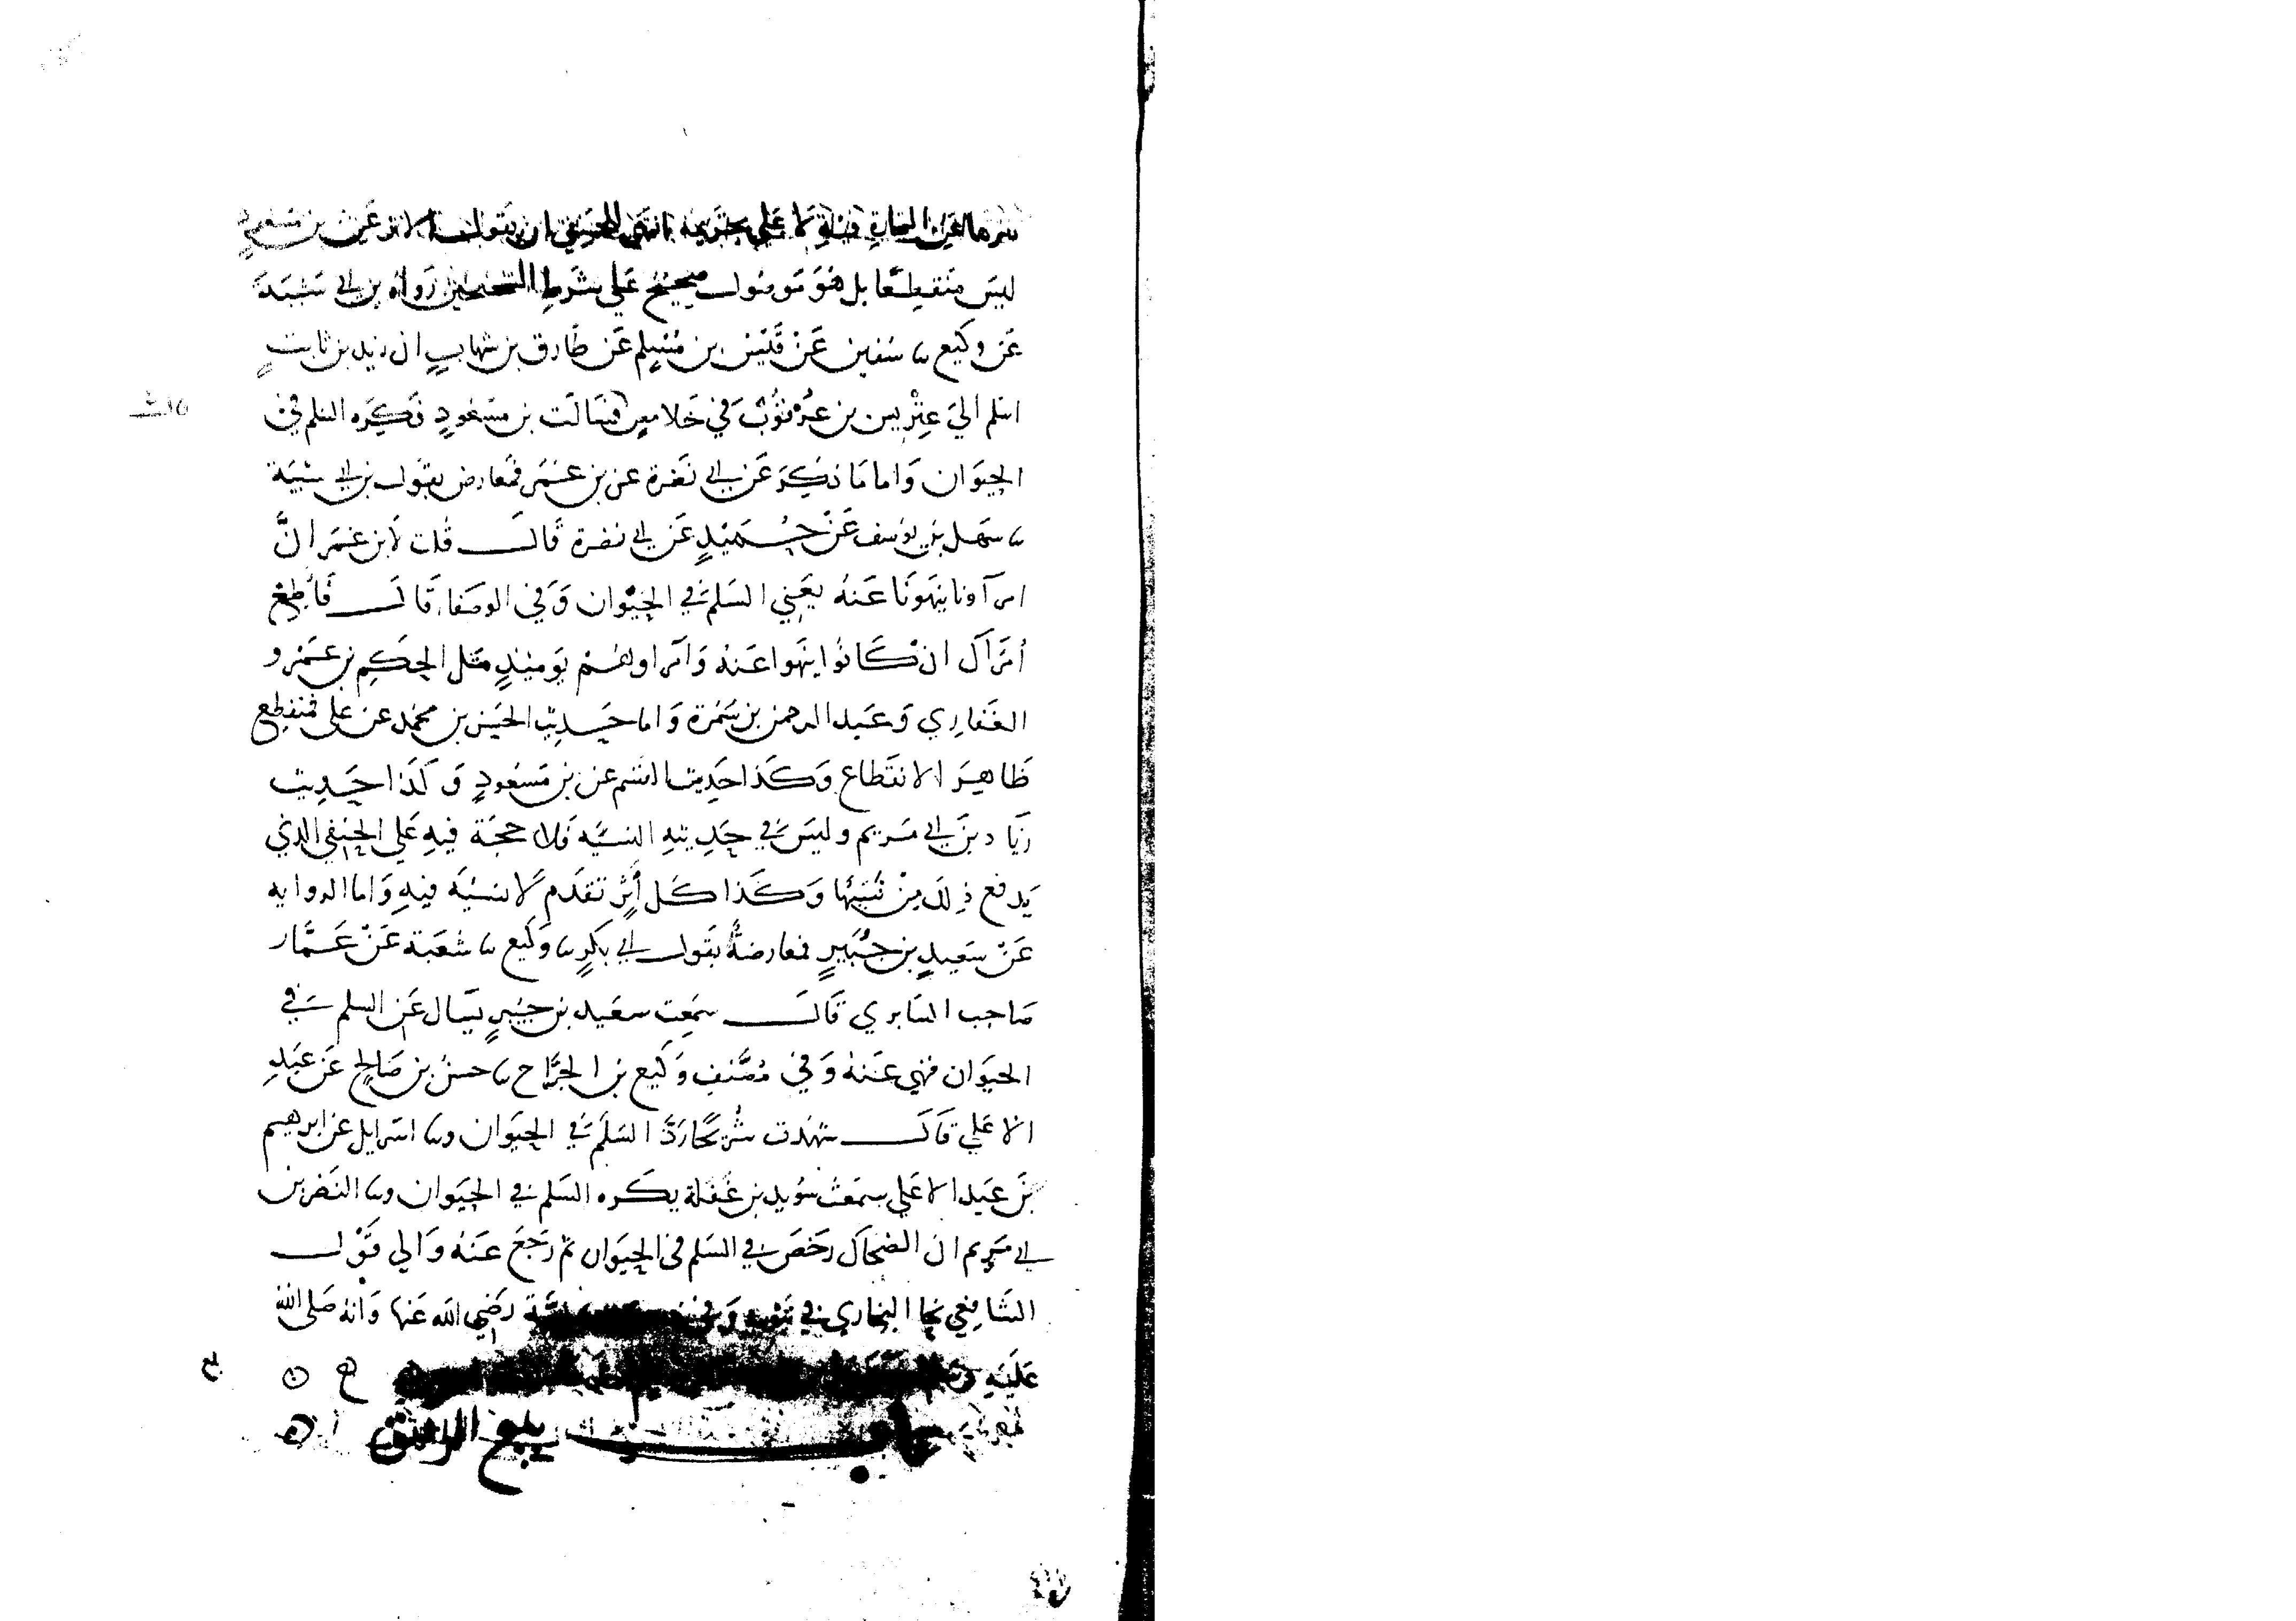 على تحريمه انتهى للحنفي ان يقول الاثر عن بن مسعودٍ
ليسَ منقطعًا بل هوَ موصول صحيح علي شرط الشيخين رواه بن ابي شيبَة
عَن وكيع ثنا سفين عَن قَيس بن مُسلم عَن طارق بن شهابٍ ان زيد بن ثابتٍ
اسلم الي عِتْريس بن عُرْقُوبٌ في خلاص فسالت بن مسعودٍ فكره السلم في
الحيوَان وَاما مَا ذكرَ عَن ابي نضرة عن بن عُمَر فمعارض بقول بن ابي شيبة
ثنا سَهل بن يوسف عَنْ حُميْدٍ عَن ابي نضرة قَالَ قلت لابن عمَر انَّ
امرآونا ينهونَا عَنهُ يعَني السَلم في الحيْوان وَفي الوصَفا قَالَ فَأَطِعْ
أمَرَآك ان كَانوُا ينهَوا عَنهُ وَامرَاوهُمْ يَوميذٍ مثل الحكم بن عَمْرو
الغَفارِي وَعَبد الرحمن بن سَمُرة وَاما حَديث الحَسن بن محمد عن علي فمنقطع
ظَاهِرَ الانقطاع وَكذا حَديث القسم عن بن مَسعودٍ وَكَذا حَديث
زيَاد بن ابي مَريم وليسَ في حَدِيثهِ النسيَّه فَلا حجَة فيهِ عَلي الحنفي الذي
يَدفع ذلك مِنْ وَكَذا كل أثرٍ تقدَم لا نسيَه فيهِ وَاما الروايه
عَنْ سَعيدٍ بن جُبَيرٍ فمعارضةٌ بقول ابي بكرٍ ثنا وَكيع ثنا شعَبة عَنْ عَمَّار
صَاحب السَابري قَالَ سَمعت سعَيد بن جبيرٍ يسَال عَن السلم في
الحيَوان فنهي عَنهُ وَفي مُصَّنف وَكيع بن الجرَّاح ثنا حسنُ بن صَالح عَن عَبدِ
الاعَلي قَالَ شهَدت شرُيحًا رَدَّ السَلَم في الحيَوان وثنا اسَرايل عَن ابرهيم
بَن عَبد الاعَلي سمعَت سُويد بن غفلة يكَره السَلم في الحيَوان وثنا النضَر بن
ابي مَريم ان الضحاك رخَصَ في السَلم في الحيَوان ثم رَجعَ عَنهُ وَالي قَوْل
الشَافِعي نحا البخاري في رَضي الله عَنها وَانهُ صَلي الله
عَليَهِ